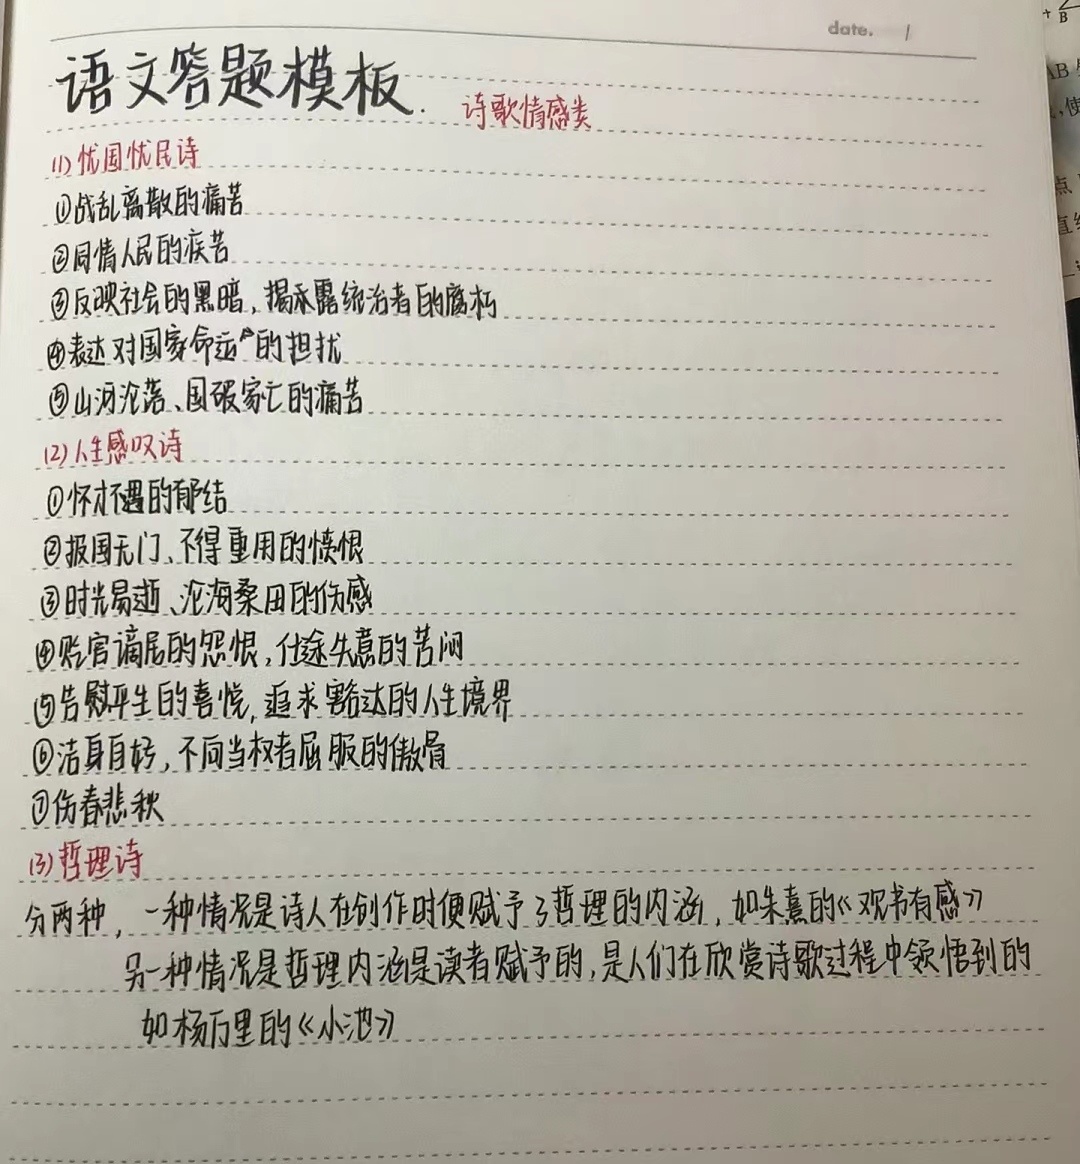 date. /
语文答题模板. 诗歌情感类
(1)忧国忧民诗
①战乱离散的痛苦
②同情人民的疾苦
③反映社会的黑暗,揭露统治者的腐朽
④表达对国家命运的担扰
⑤山河沦落、国破家亡的痛苦
(2)人生感叹诗
①怀才不遇的郁结
②报国无门、不得重用的愤恨
③时光易逝、沧海桑田的伤感
④贬官谪居的怨恨,仕途失意的苦闷
⑤告慰平生的喜悦,追求豁达的人生境界
⑥洁身自好,不向当权者屈服的傲骨
⑦伤春悲秋
(3)哲理诗
分两种,一种情况是诗人在创作时便赋予了哲理的内涵,如朱熹的《观书有感》
另一种情况是哲理内涵是读者赋予的,是人们在欣赏诗歌过程中领悟到的
如杨万里的《小池》
B
AB
使
点
直线